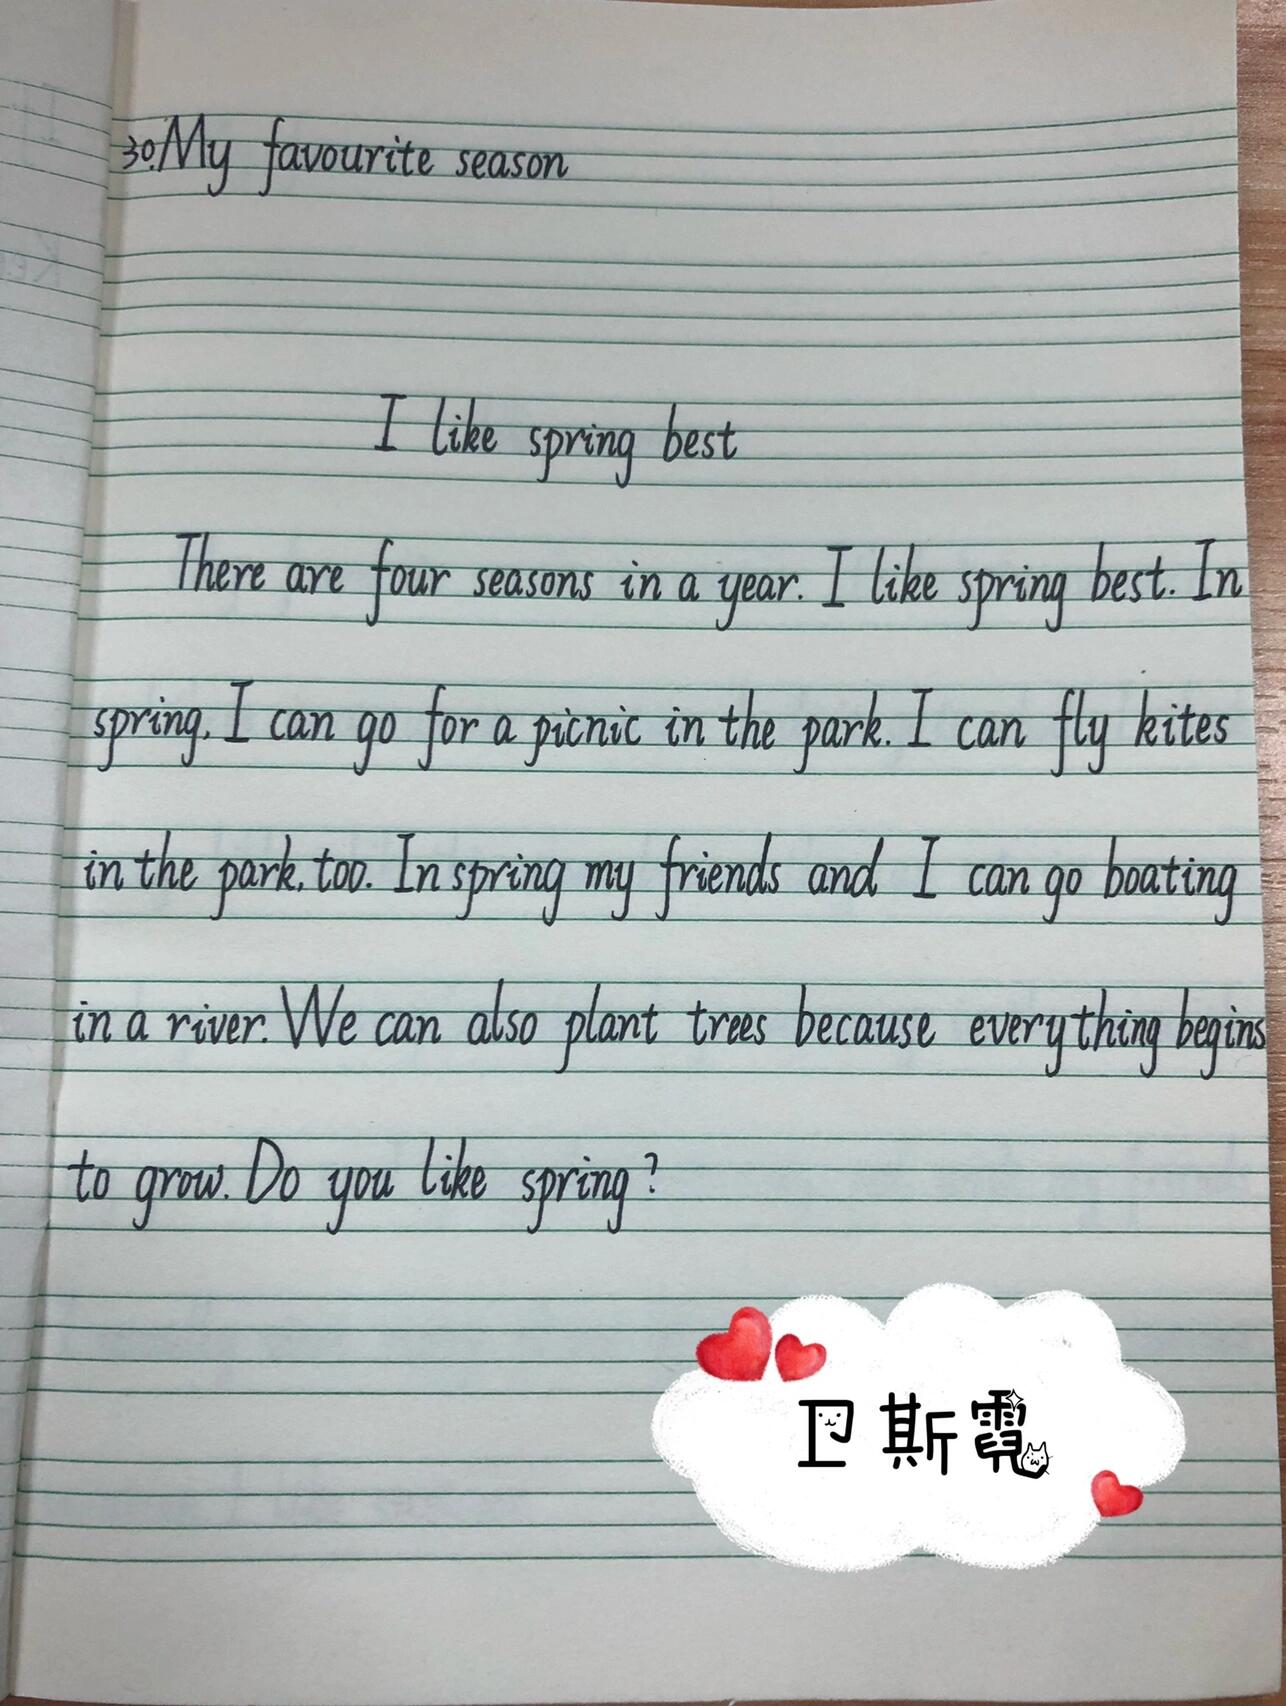 30. My favourite season
I like spring best
There are four seasons in a year. I like spring best. In
spring, I can go for a picnic in the park. I can fly kites
in the park, too. In spring my friends and I can go boating
in a river. We can also plant trees because everything begins
to grow. Do you like spring?
卫斯霓